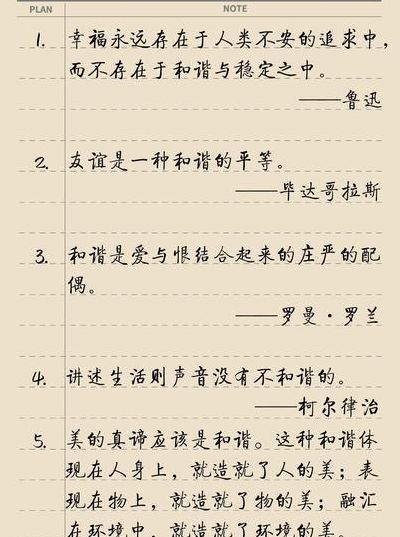 PLAN NOTE
1. 幸福永远存在于人类不安的追求中，
而不存在于和谐与稳定之中。
——鲁迅
2. 友谊是一种和谐的平等。
——毕达哥拉斯
3. 和谐是爱与恨结合起来的庄严的配
偶。
——罗曼·罗兰
4. 讲述生活则声音没有不和谐的。
——柯尔律治
5. 美的真谛应该是和谐。这种和谐体
现在人身上，就造就了人的美；表
现在物上，就造就了物的美；融汇
在环境中，就造就了环境的美。